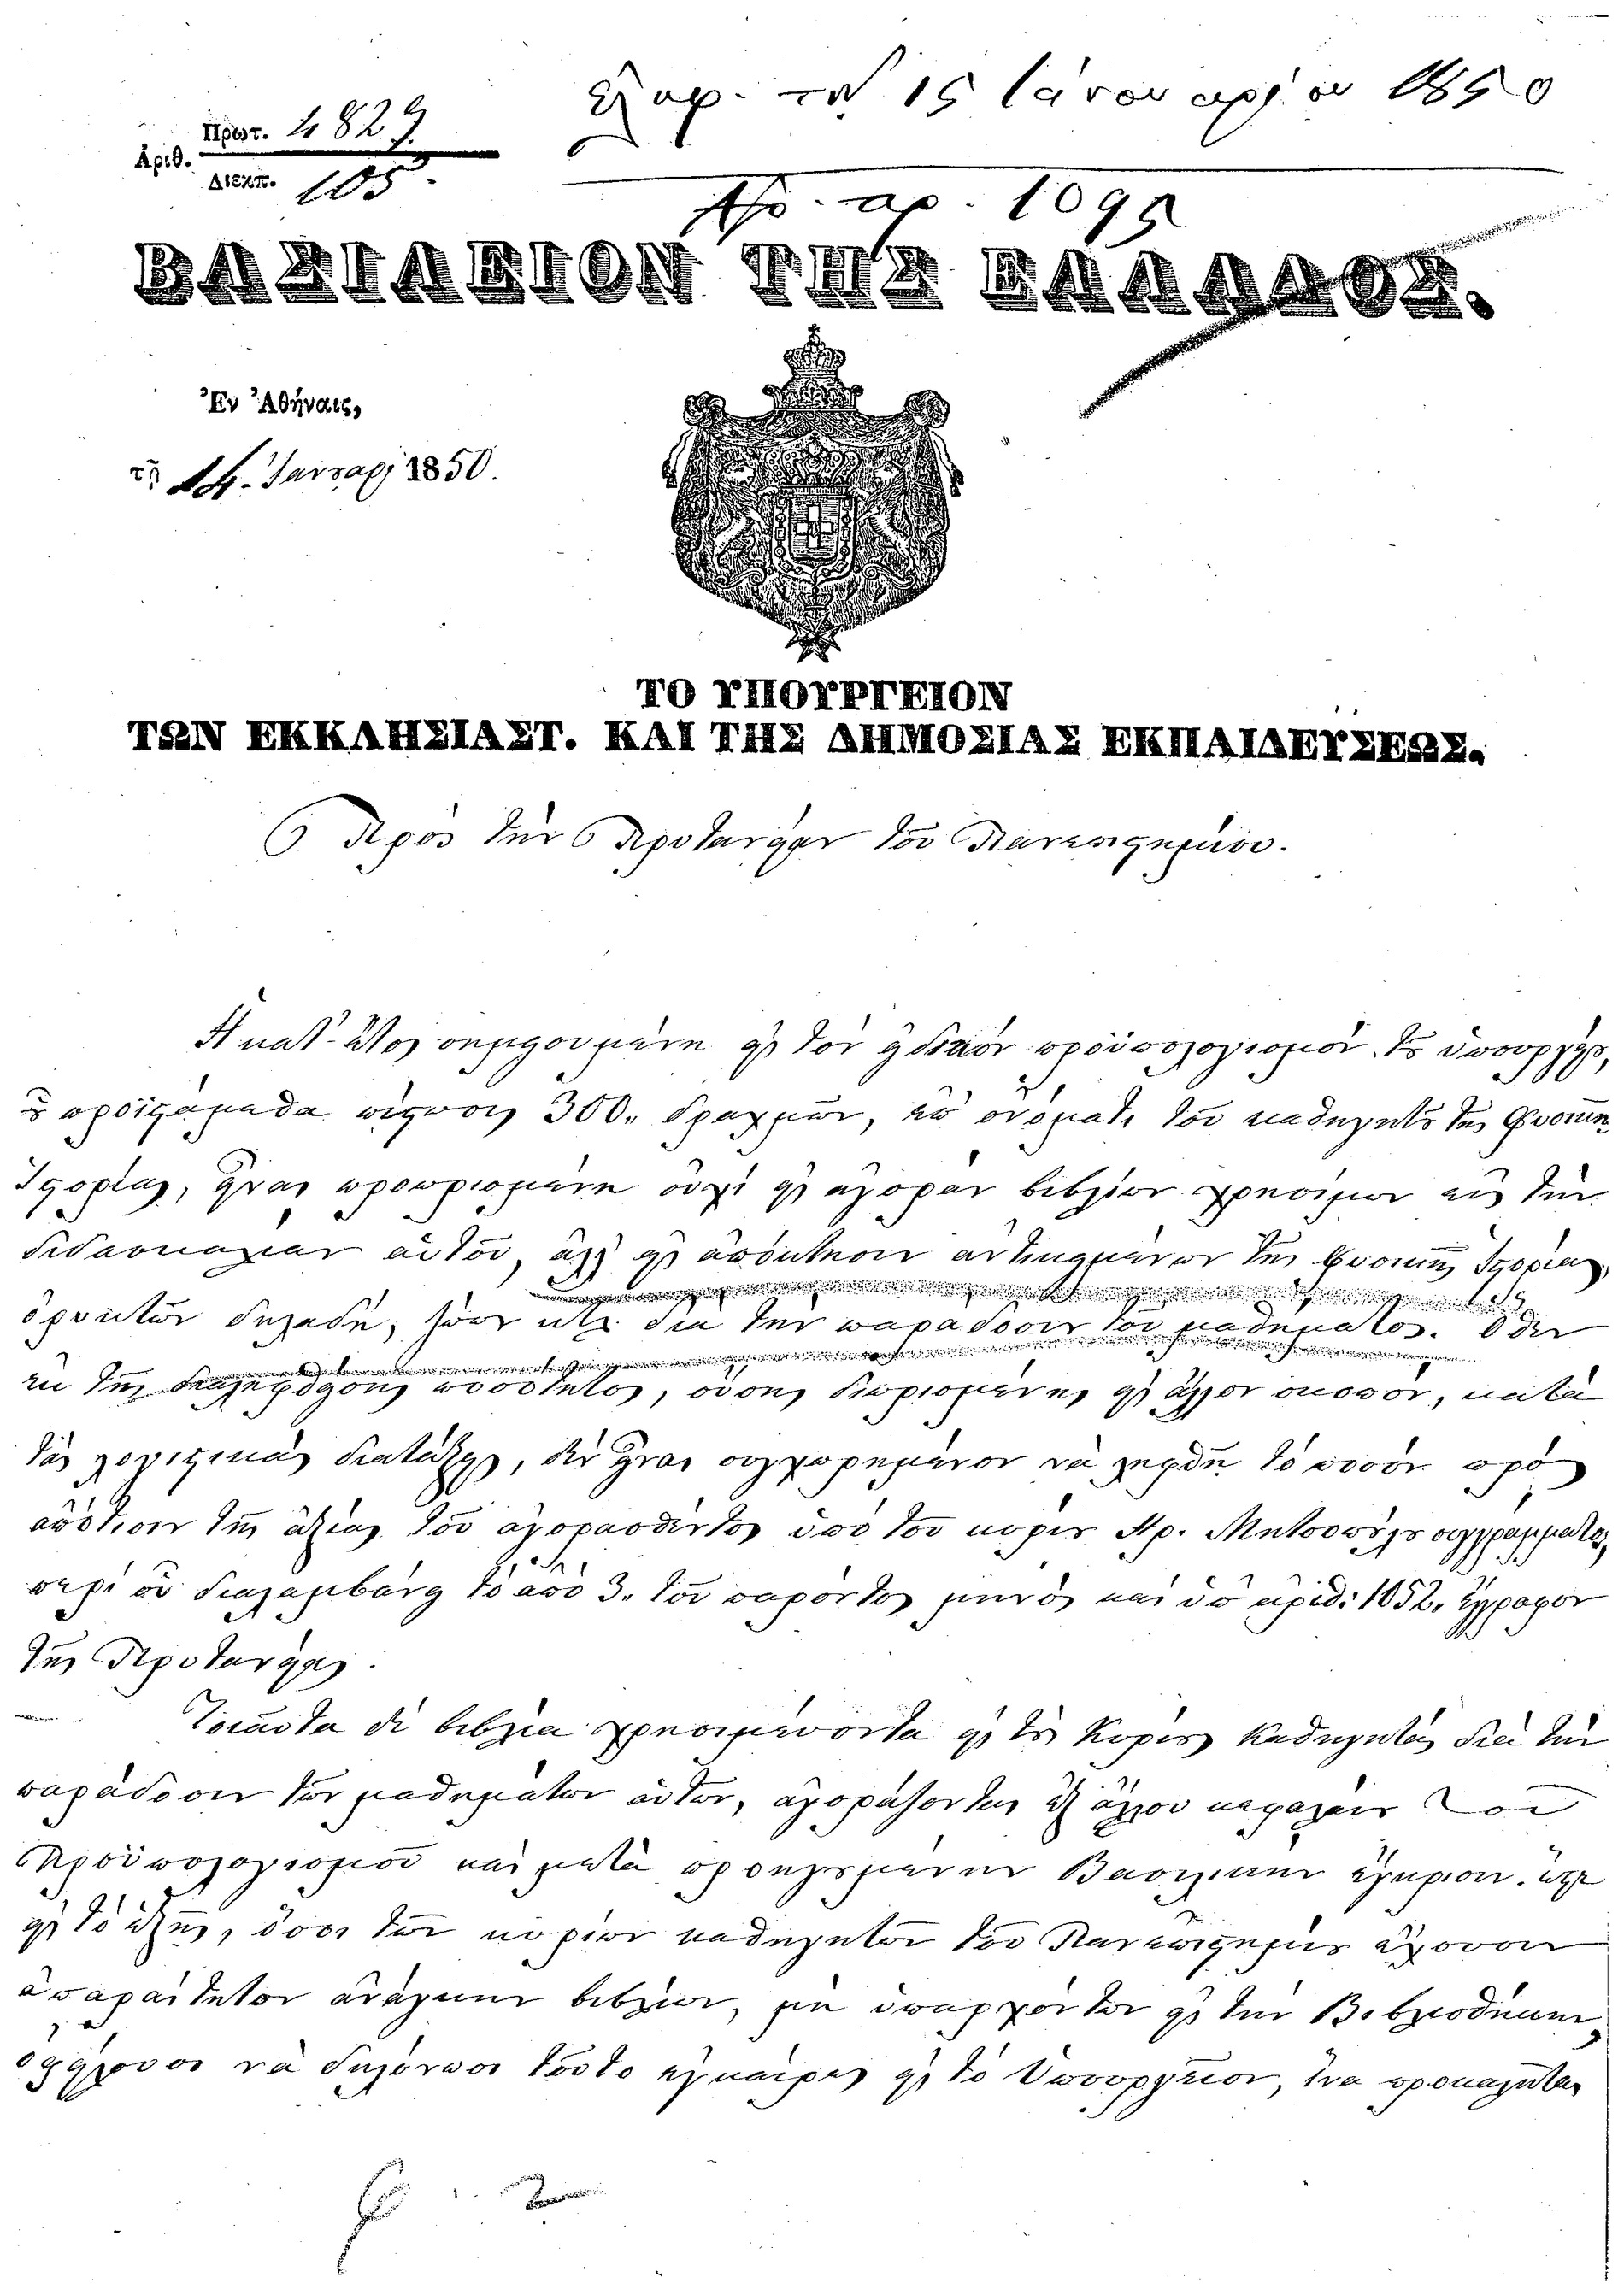 ἐλήφ. τῇ 15 Ἰανουαρίου 1850
Πρωτ. 4829
Ἀριθ.
Διεκπ. 105
Πρ. αρ. 1095
ΒΑΣΙΛΕΙΟΝ ΤΗΣ ΕΛΛΑΔΟΣ.
Ἐν Ἀθήναις,
τῇ 14. Ἰανουαρ. 1850.
ΤΟ ΥΠΟΥΡΓΕΙΟΝ
ΤΩΝ ΕΚΚΛΗΣΙΑΣΤ. ΚΑΙ ΤΗΣ ΔΗΜΟΣΙΑΣ ΕΚΠΑΙΔΕΥΣΕΩΣ.
Πρὸς τὴν Πρυτανείαν τοῦ Πανεπιστημίου.
Ἡ κατ' ἔτος σημειουμένη εἰς τὸν εἰδικὸν προϋπολογισμὸν τοῦ ὑπουργείου,
προϊσταμένου πίστωσις 300. δραχμῶν, ἐπ' ὀνόματι τοῦ καθηγητοῦ τῆς Φυσικῆς
Ἱστορίας, εἶναι προωρισμένη οὐχὶ εἰς ἀγορὰν βιβλίων χρησίμων εἰς τὴν
διδασκαλίαν αὐτοῦ, ἀλλ' εἰς ἀπόκτησιν ἀντικειμένων τῆς Φυσικῆς Ἱστορίας,
ὀρυκτῶν δηλαδή, ζώων κτλ. διὰ τὴν παράδοσιν τοῦ μαθήματος. Ὅθεν
ἐκ τῆς διαληφθείσης ποσότητος, οὔσης διωρισμένης εἰς ἄλλον σκοπόν, κατὰ
τὰς λογιστικὰς διατάξεις, δὲν εἶναι συγχωρημένον νὰ ληφθῇ τὸ ποσὸν πρὸς
ἀπότισιν τῆς ἀξίας τοῦ ἀγορασθέντος ὑπὸ τοῦ κυρίου Ἡρ. Μητσοπούλου συγγράμματος,
περὶ οὗ διαλαμβάνει τὸ ἀπὸ 3. τοῦ παρόντος μηνὸς καὶ ὑπ' ἀριθ: 1052. ἔγγραφον
τῆς Πρυτανείας.
Τοιαῦτα δὲ βιβλία χρησιμεύοντα εἰς τοὺς Κυρίους Καθηγητὰς διὰ τὴν
παράδοσιν τῶν μαθημάτων αὐτῶν, ἀγοράζονται ἐξ ἄλλου κεφαλαίου τοῦ
Προϋπολογισμοῦ καὶ μετὰ προηγουμένην Βασιλικὴν ἔγκρισιν. ὥστε
εἰς τὸ ἑξῆς, ὅσοι τῶν κυρίων καθηγητῶν τοῦ Πανεπιστημίου ἔχουσιν
ἀπαραίτητον ἀνάγκην βιβλίων, μὴ ὑπαρχόντων εἰς τὴν Βιβλιοθήκην,
ὀφείλουσι νὰ δηλώνωσι τοῦτο ἐγκαίρως εἰς τὸ Ὑπουργεῖον, ἵνα προκαλῆται